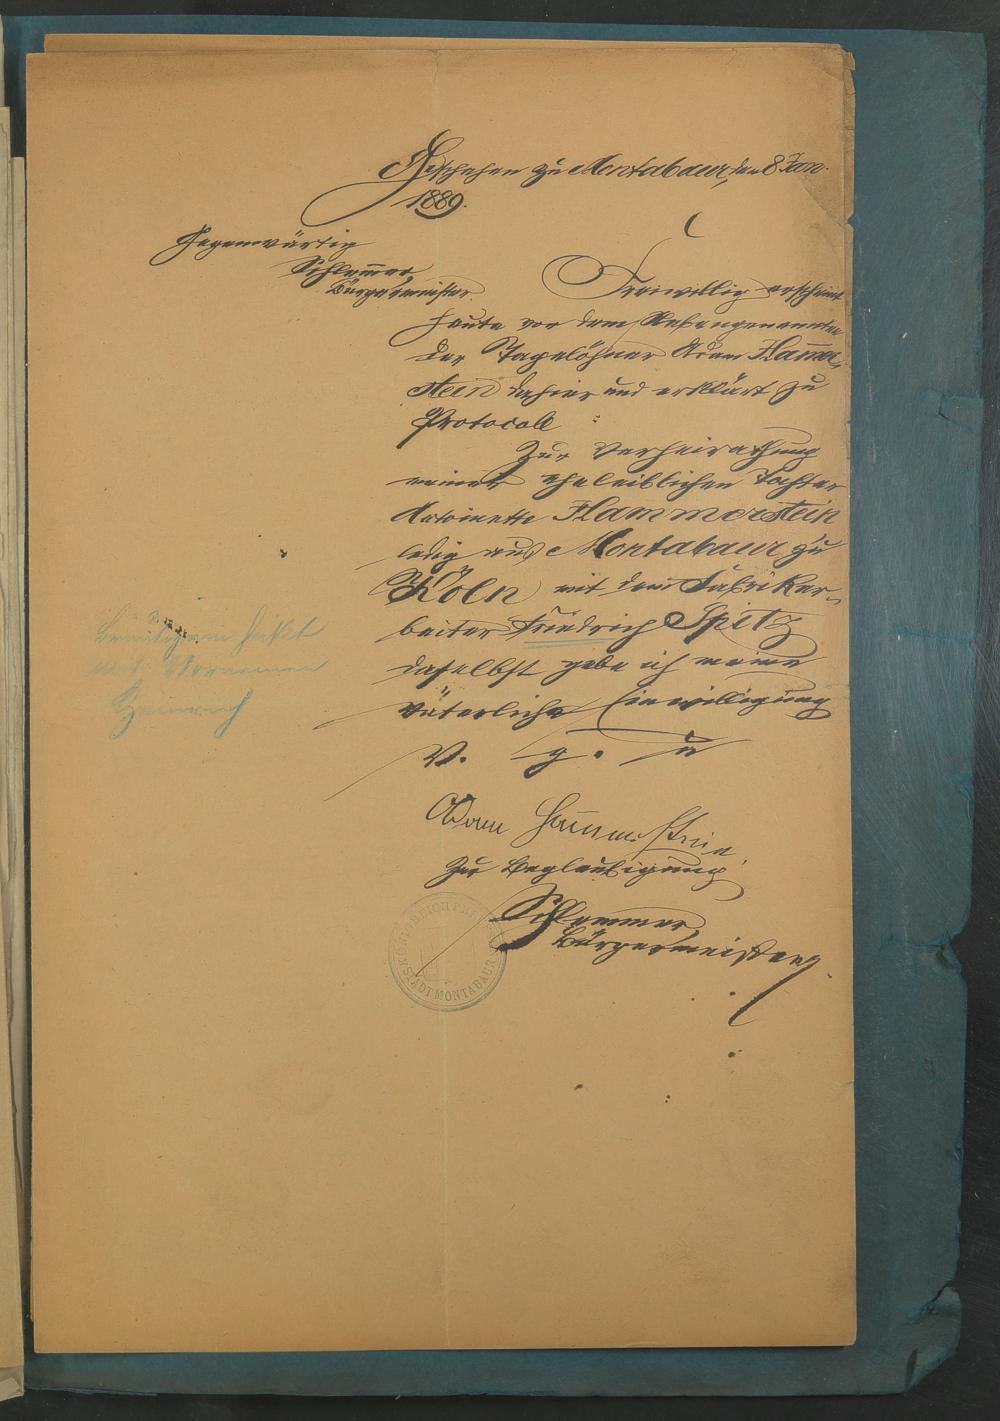 Geschehen zu Montabaur, den 8 Jan.
1889.
Gegenwärtig
Schlemmer,
Bürgermeister.
Freiwillig erscheint
heute vor dem Nebengenannten
der Tagelöhner Adam Hammer-
stein dahier und erklärt zu
Protocoll:
Zur Verheirathung
meiner eheleiblichen Tochter
Antoinette Hammerstein
ledig aus Montabaur zu
Köln mit dem Fabrikar-
beiter Friedrich Spitz
daselbst gebe ich meine
väterliche Einwilligung
V. g. u
Adam Hammerstein
Zur Beglaubigung
Schlemmer,
Bürgermeister
Bräutigam heißt
mit Vornamen
Heinrich
STADT MONTABAUR